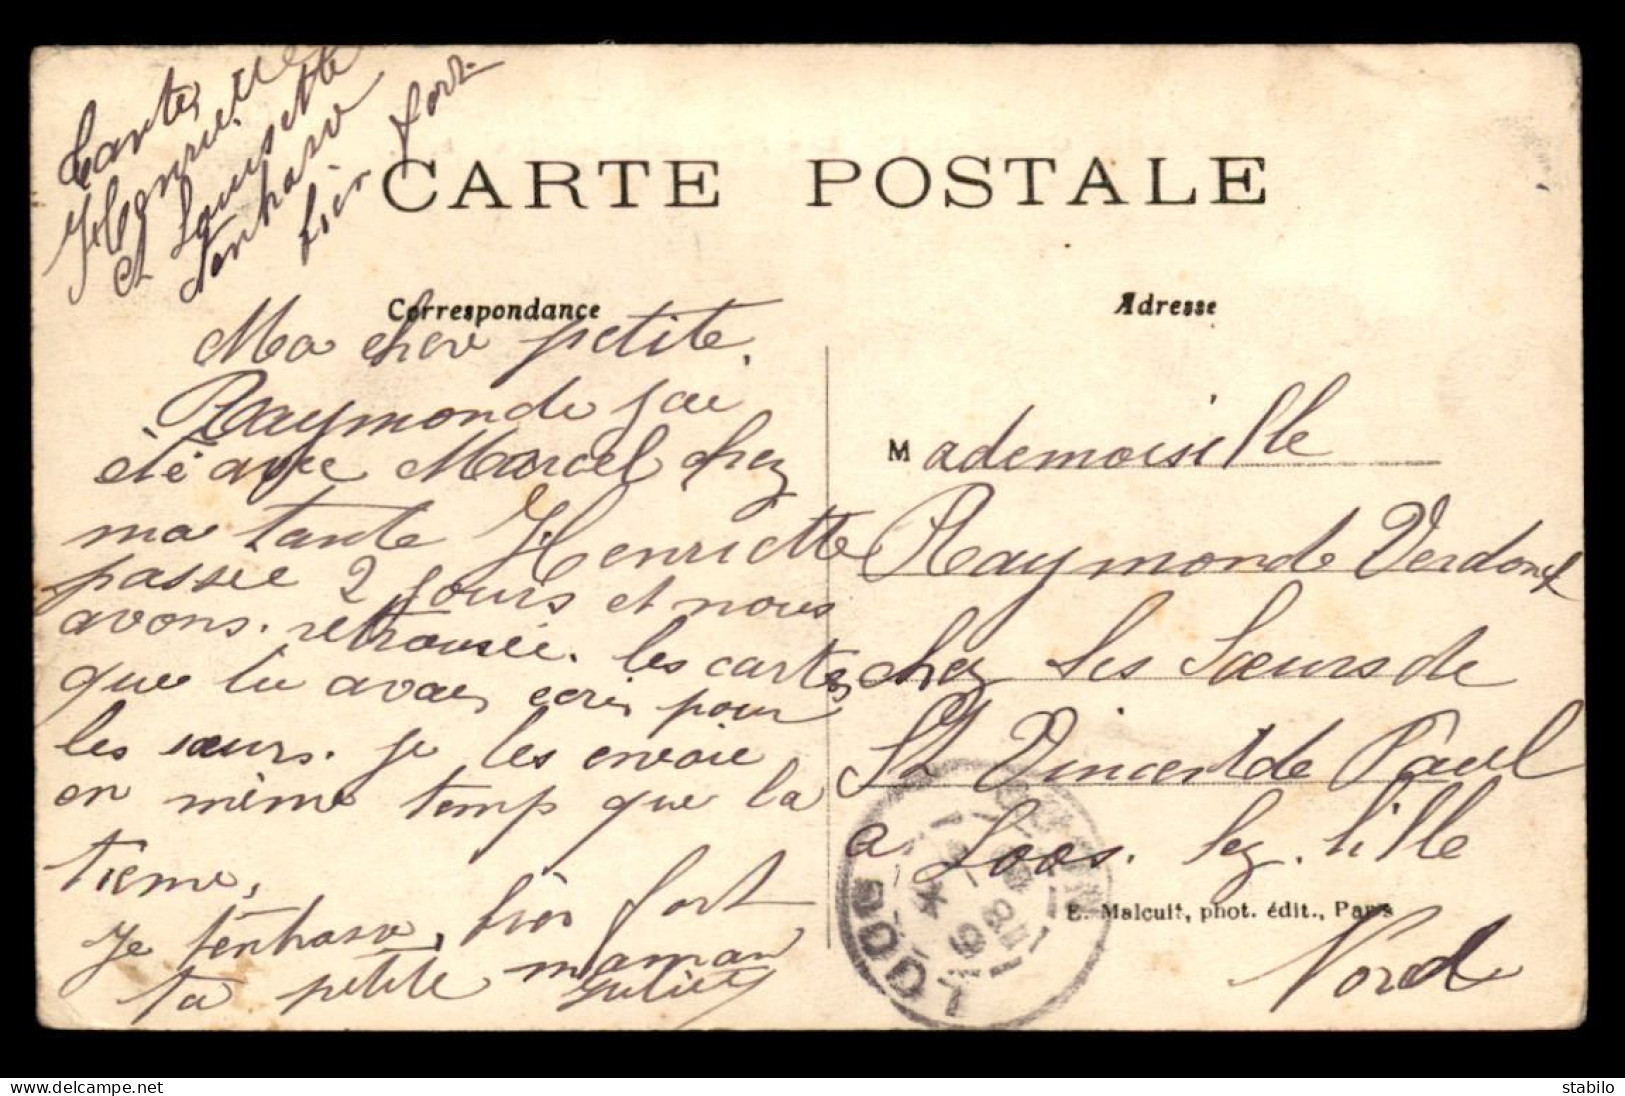 tante,
Henriette
et Louisette
t'enbrasse
bien fort
CARTE POSTALE
Correspondance
Ma chere petite,
Raymonde j'ai
été avec Marcel chez
ma tante Henriette
passee 2 jours et nous
avons. retrousée. les cartes
que tu avais ecris pour
les sœurs. je les envoie
en même temp que la
tienne,
Je t'enbrasse, bien fort
ta petite maman
Juliette
Adresse
Mademoiselle
Raymonde Verdonck
chez les Sœurs de
St Vincent de Paul
a Loos. lez. lille
Nord
E. Malcuit, phot. édit., Paris
LOOS
NORD
stabilo